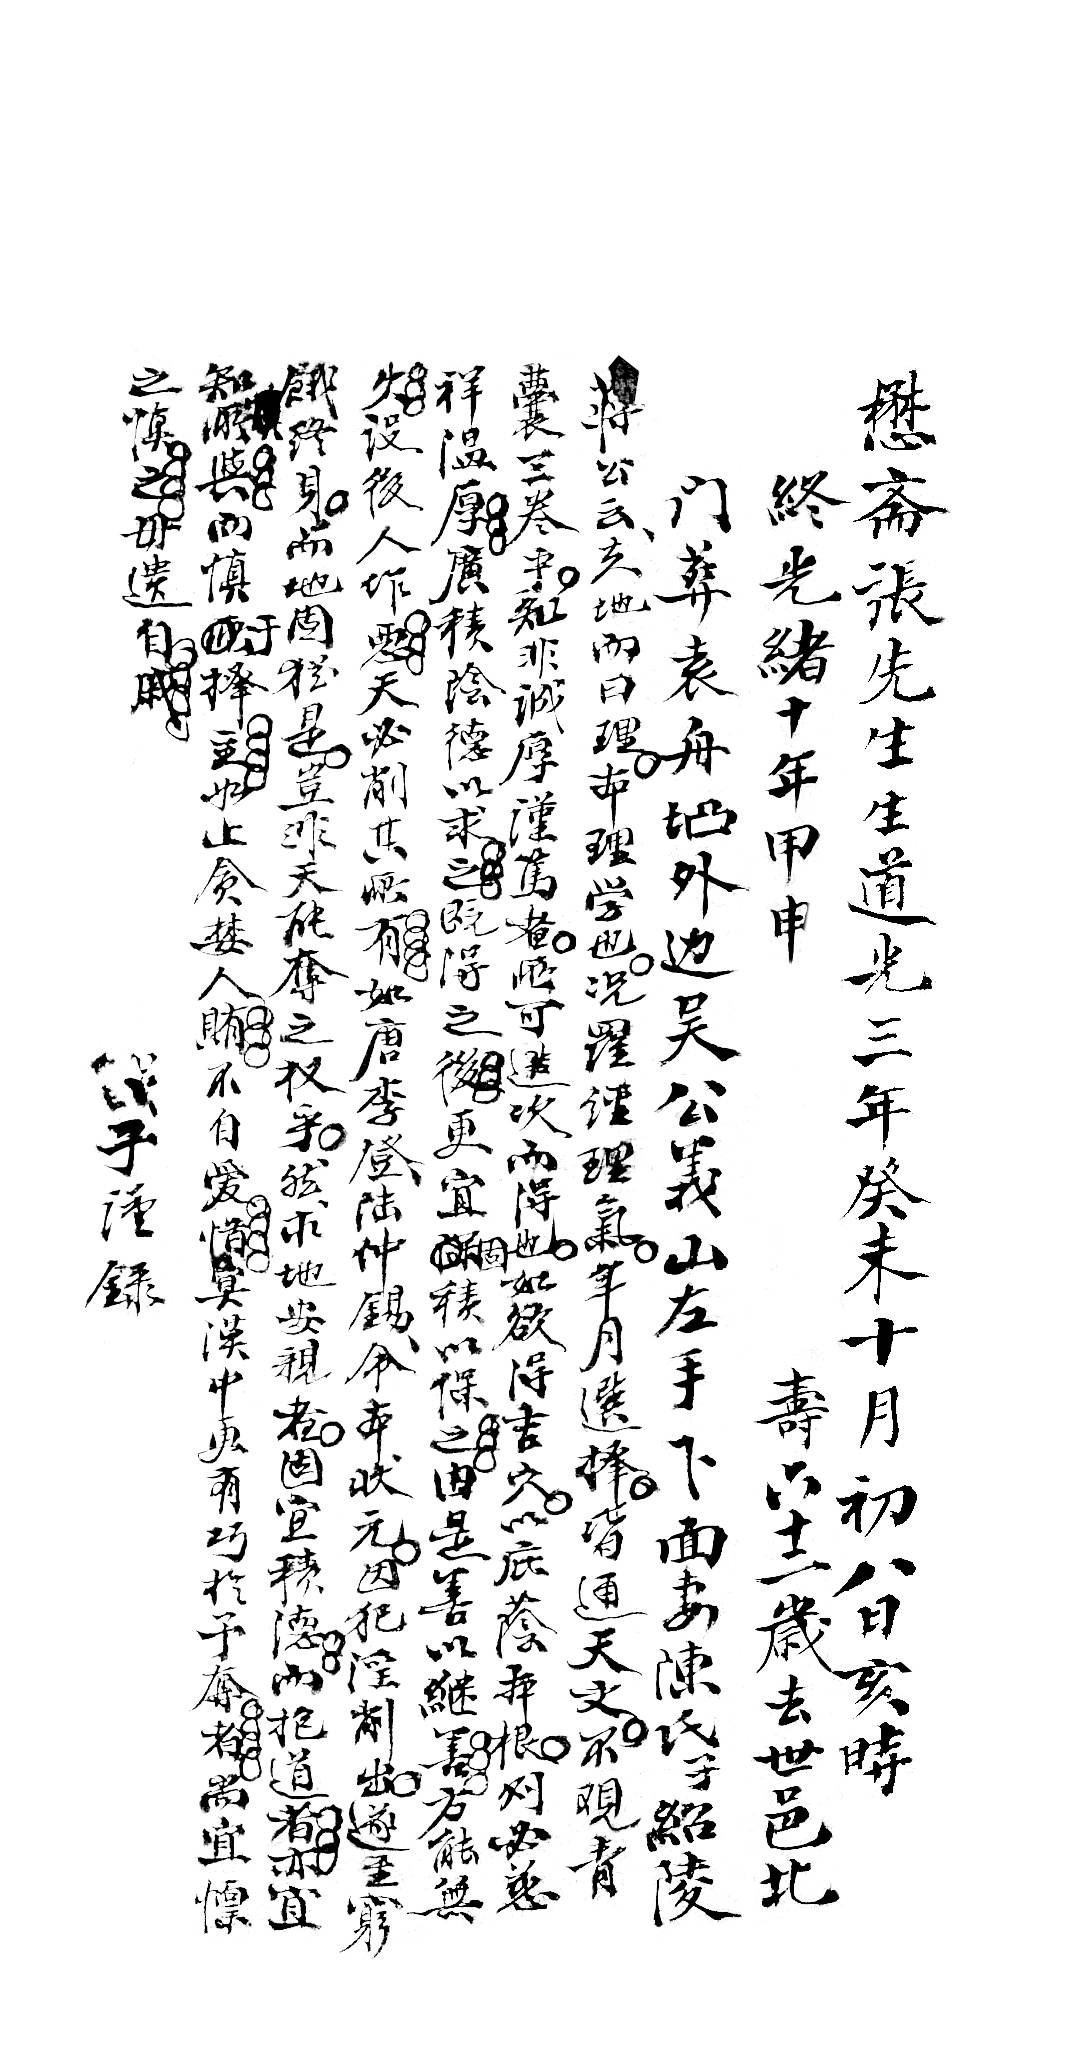 懋斋張先生生道光三年癸未十月初八日亥時
終光緒十年甲申 壽六十二歲去世邑北
門葬袁舟凹外边吴公義山左手下面妻陳氏子紹陵
蔣公云、夫地而曰理。布理学也。况羅經理氣。年月選擇。皆通天文。不观青
囊三卷乎。知非誠厚謹篤者。断可造次而得也。如欲得吉穴。以庇蔭弄根。列必慈
祥温厚廣積陰德以求之既得之後更宜固積以保之由是善以継善方能無
失設後人作惡天必削其所有如唐李登、陆仲錫、命本状元。因犯淫削出。遂至窮
餓終身。而地固猶是。豈非天能奪之权乎。然求地安親者。固宜積德而抱道者亦宜
知所與而慎于择主如止贪婪人賄不自爱惜冥漠中更有巧於予奪者尚宜慎
之慎之毋遗自戚
戊子謹録